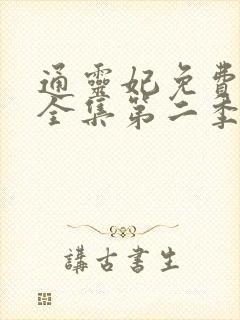 通靈妃免費
全集第二季
講古書生